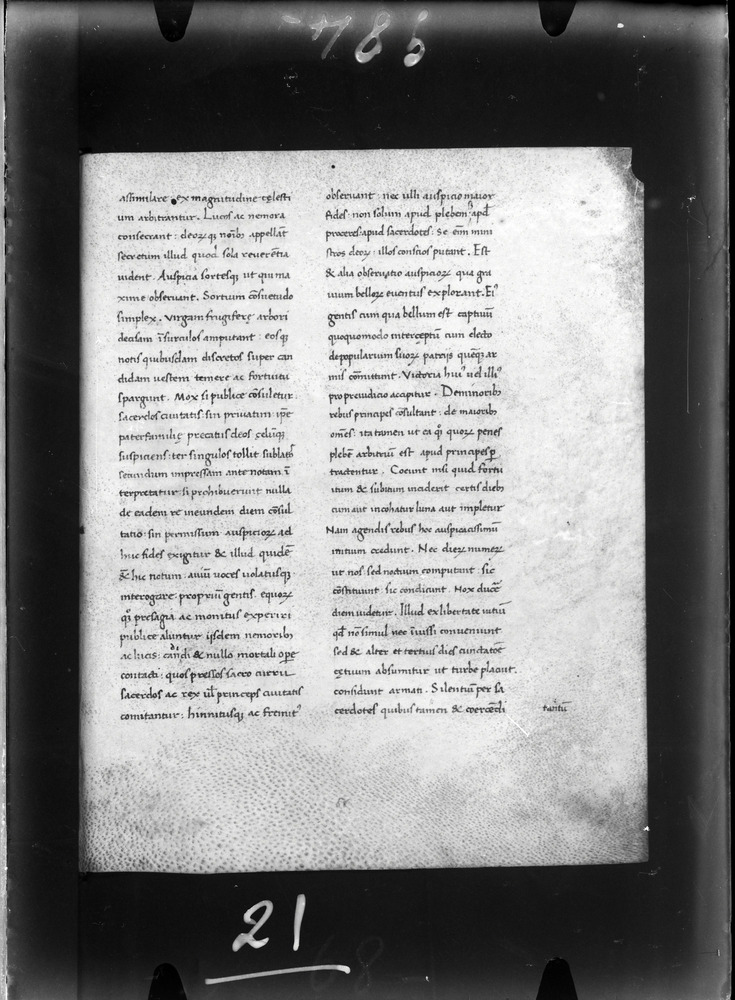 assimilare ex magnitudine cęlesti
um arbitrantur. Lucos ac nemora
consecrant: deoꝝ qꝫ noı̅bꝫ appellāt
secretum illud quod sola reuerētia
uident. Auspicia sortesqꝫ ut qui ma
xime obseruant. Sortium cōsuetudo
simplex. Virgam frugiferę arbori
decisam ī surculos amputant: eosqꝫ
notis quibusdam discretos super can
didam uestem temere ac fortuitu
spargunt. Mox si publice cōsuletur:
sacerdos ciuitatis: sin priuatim: ip̄e
paterfamilię precatus deos cęlūqꝫ
suspiciens: ter singulos tollit: sublatos
secundum impressam ante notam ī
terpretatur: si prohibuerunt nulla
de eadem re in eundem diem cōsul
tatio: sin permissum: auspicioꝝ ad
huc fides exigitur & illud quidē
& hic notum: auiū uoces uolatusqꝫ
interogare: propriū gentis: equoꝝ
qꝫ presagia ac monitus experiri
publice aluntur iisdem nemoribꝫ
ac lucis: candidi & nullo mortali ope
contacti: quos pressos sacro curru
sacerdos ac rex uł princeps ciuitatis
comitantur: hinnitusqꝫ ac fremitꝰ
obseruant: nec ulli auspicio maior
fides: non solum apud plebem: apđ
proceres: apud sacerdotes: Se em̄ mini
stros deoꝝ: illos conscios putant. Est
& alia obseruatio auspicioꝝ qua gra
uium belloꝝ euentus explorant. Eiꝰ
gentis cum qua bellum est captiuū
quoquo modo interceptū cum electo
depopularium suoꝝ patrijs quēqꝫ ar
mis cōmittunt. Victoria huiꝰ uel illiꝰ
pro preiudicio accipitur. De minoribꝫ
rebus principes cōsultant: de maioribꝫ
om̄es: ita tamen ut ea qꝫ quoꝝ penes
plebē arbitriū est apud principes ꝑ
tractentur. Coeunt nisi quid fortu
itum & subitum inciderit certis diebꝫ
cum aut incohatur luna aut impletur
Nam agendis rebus hoc auspicatissimū
initium credunt. Nec dieꝝ numeꝝ
ut nos: sed noctium computant: sic
cōstituunt: sic condicunt. Nox ducē
diem uidetur. Illud ex libertate uitiū
qđ nō simul nec iussi conueniunt
sed & alter et tertius dies cunctatōe
cętuum absumitur ut turbe placuit.
considunt armati. Silentiū per sa
cerdotes quibus tamen & coercēdi
21